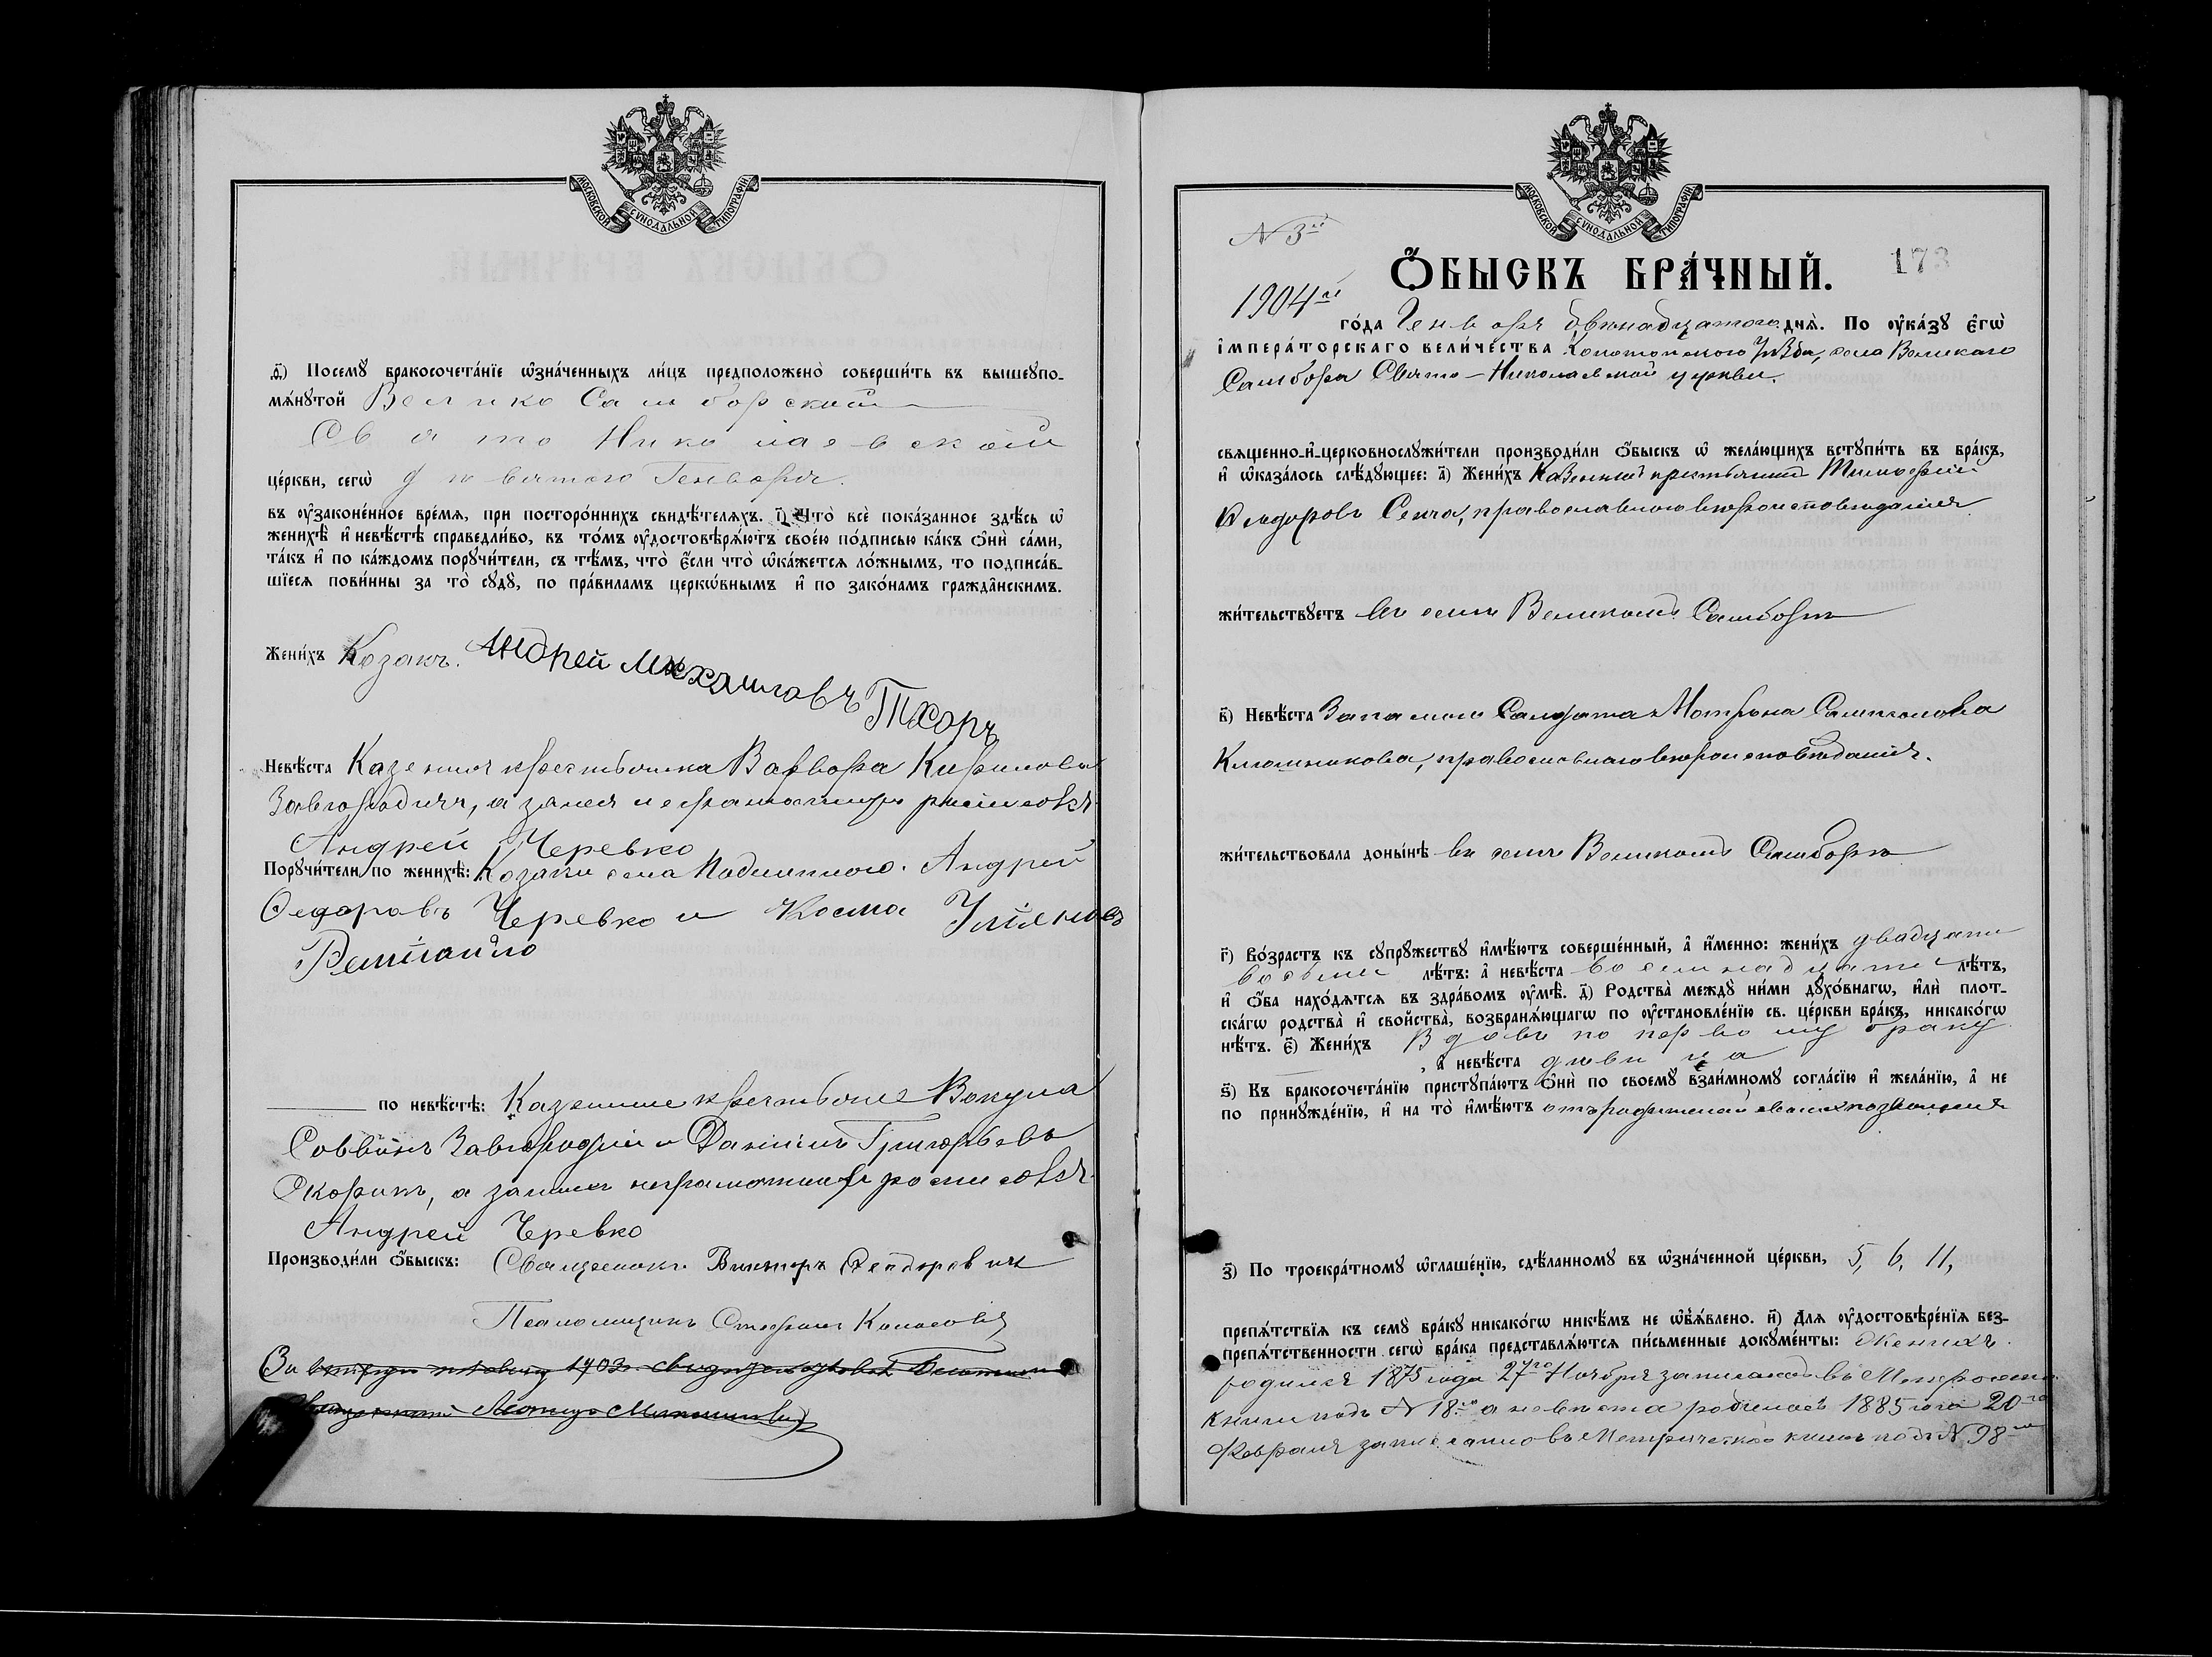 МОСКОВСКОЙ СѴНОДАЛЬНОЙ ТИПОГРАФІИ
ѳ҃) Посемꙋ̀ бракосочета́нїе ѡ҆зна́ченныхъ ли́цъ предположено̀ соверши́ть въ вышеꙋпо-
мѧ́нꙋтой Велико Самборской
Свято Николаевской
це́ркви, сегѡ̀ девятого Генваря.
въ ᲂу҆зако́не́нное вре́мѧ, при посторо́ннихъ свидѣ́телѧхъ. і҃) Что̀ всѐ пока́занное здѣ́сь ѡ҆
женихѣ̀ и҆ невѣ́стѣ справедли́во, въ то́мъ ᲂу҆достовѣрѧ́ютъ свое́ю по́дписью ка́къ ѻ҆нѝ са́ми,
та́къ и҆ по ка́ждомъ порꙋчи́тели, съ тѣ́мъ, что̀ є҆́сли что̀ ѡ҆ка́жетсѧ ло́жнымъ, то подписа́в-
шїесѧ пови́нны за то̀ сꙋдꙋ̀, по пра́виламъ церко́внымъ и҆ по зако́намъ гражда́нскимъ.
Жени́хъ Козакъ. Андрей Михаиловъ
Тхоръ
Невѣ́ста Казенная крестьянка Варвара Кирилова
Завгородняя, а за нея неграмотную росписовся
Андрей Черевко
Порꙋчи́тели по женихѣ̀: Козаки села Подлипного. Андрей
Ѳедоровъ Черевко и Косма
по невѣ́стѣ: Казенные крестьяне Вакула
Саввинъ Завгородній и Даніилъ Григорьевъ
Скорикъ, а за нихъ неграмотныхъ росписовся
Андрей Черевко
Производи́ли ѻ҆́быскъ: Священникъ Викторъ
Псаломщикъ Стефанъ
За 1903
МОСКОВСКОЙ СѴНОДАЛЬНОЙ ТИПОГРАФІИ
N 3й
Ѻ҆́БЫСКЪ БРА́ЧНЫЙ. 173
1904го
го́да Генваря двенадцатого днѧ̀. По ᲂу҆ка́зꙋ є҆гѡ̀
і҆мпера́торскагѡ вели́чества Конотопского Уѣзда, села Великаго
Самбора Свято-Николаевской церкви.
свѧщенно-и҆-церковнослꙋжи́тели производи́ли ѻ҆́быскъ ѡ҆ жела́ющихъ встꙋпи́ть въ бра́къ,
и҆ ѡ҆каза́лось слѣ́дꙋющее: а҃) Жени́хъ Казенный крестьянинъ Тимофей
Ѳедоровъ Сенча, православного вероисповедания
жи́тельствꙋетъ въ селе Великомъ Самборе
в҃) Невѣ́ста Запасного Салдата Мотрона
Ключникова, православнаго вероисповедания.
жи́тельствовала доны́нѣ въ селе Великомъ Самборе
г҃) Во́зрастъ къ сꙋпрꙋ́жествꙋ и҆мѣ́ютъ соверше́нный, а҆ и҆́менно: жени́хъ двадцати
восьми лѣ́тъ: а҆ невѣ́ста восемнадцати лѣ́тъ,
и҆ ѻ҆́ба нахо́дѧтсѧ въ здра́вомъ ᲂу҆мѣ̀. д҃) Родства̀ междꙋ̀ ни́ми дꙋхо́внагѡ, и҆лѝ плот-
ска́гѡ родства̀ и҆ сво́йства̀, возбранѧ́ющагѡ по ᲂу҆становле́нїю св. це́ркви бра́къ, никако́гѡ
нѣ́тъ. є҃) Жени́хъ Вдовъ по первому браку
, а҆ невѣ́ста девица
ѕ҃) Къ бракосочета́нїю пристꙋпа́ютъ ѻ҆нѝ по своемꙋ̀ взаи́мномꙋ согла́сїю и҆ жела́нїю, а҆ не
по принꙋжде́нїю, и҆ на то̀ и҆мѣ́ютъ отъ родителей своихъ позволения
з҃) По троекра́тномꙋ ѡ҆глаше́нїю, сдѣ́ланномꙋ въ ѡ҆зна́ченной це́ркви, 5, 6, 11,
препѧ́тствїѧ къ семꙋ̀ бра́кꙋ никако́гѡ никѣ́мъ не ѡ҆б̾ѧ́влено. и҃) Длѧ ᲂу҆достовѣре́нїѧ без-
препѧ́тственности сегѡ̀ бра́ка представлѧ́ютсѧ пи́сьменные докꙋме́нты: Женихъ
родился 1875 года 27го Ноября записанъ въ
книге подъ N 18 а невеста родилась 1885 года 20го
Февраля записанновъ Метрической книге подъ N 98